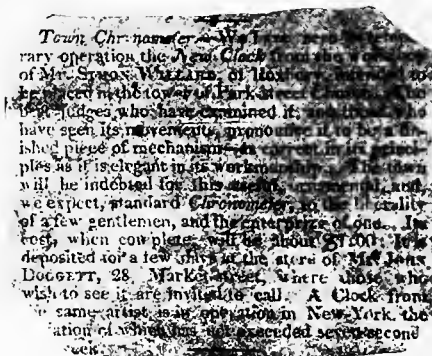 Town Chronometer.—We have
rary operation the New Clock from the
of Mr. SIMON WILLARD, of Roxbury, intended to
be placed in the tower of Park Street
best judges who have examined it, and those who
have seen its movements, pronounce it to be a fin-
ished piece of mechanism—as correct in its princi-
ples as it is elegant in its workmanship. The town
will be indebted for this useful, ornamental, and,
we expect, standard Chronometer, to the liberality
of a few gentlemen, and the enterprize of one. Its
cost, when complete will be about $1000. It is
deposited for a few days at the store of Mr. JOHN
DOGGETT, 28, Market-street, where those who
wish to see it are invited to call. A Clock from
same artist is in operation in New-York, the
ation of which has not exceeded seven second
week